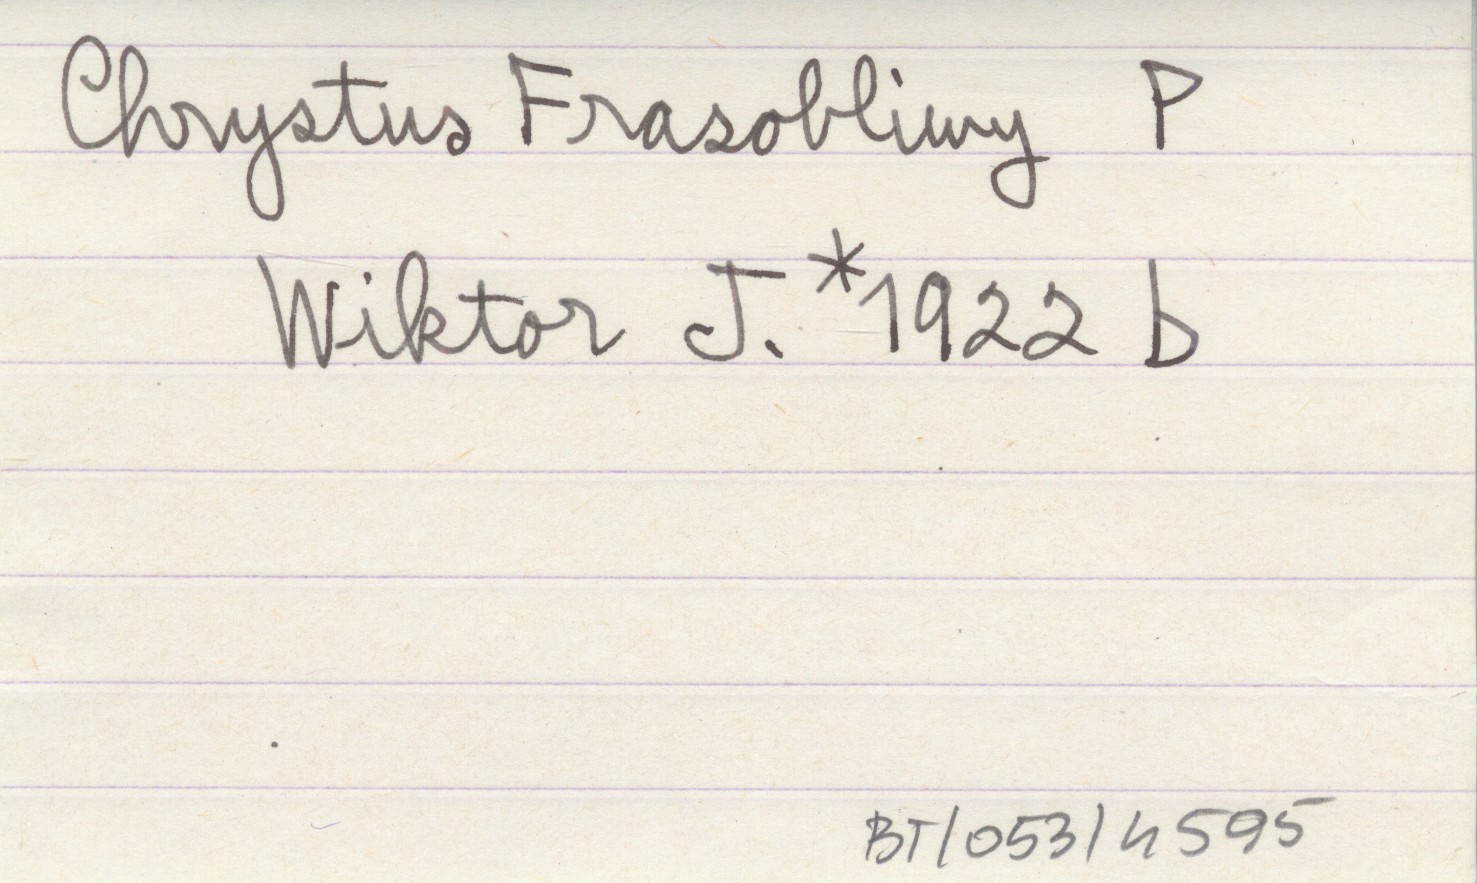 Chrystus Frasobliwy P
Wiktor J. *1922 b
BT/053/4595